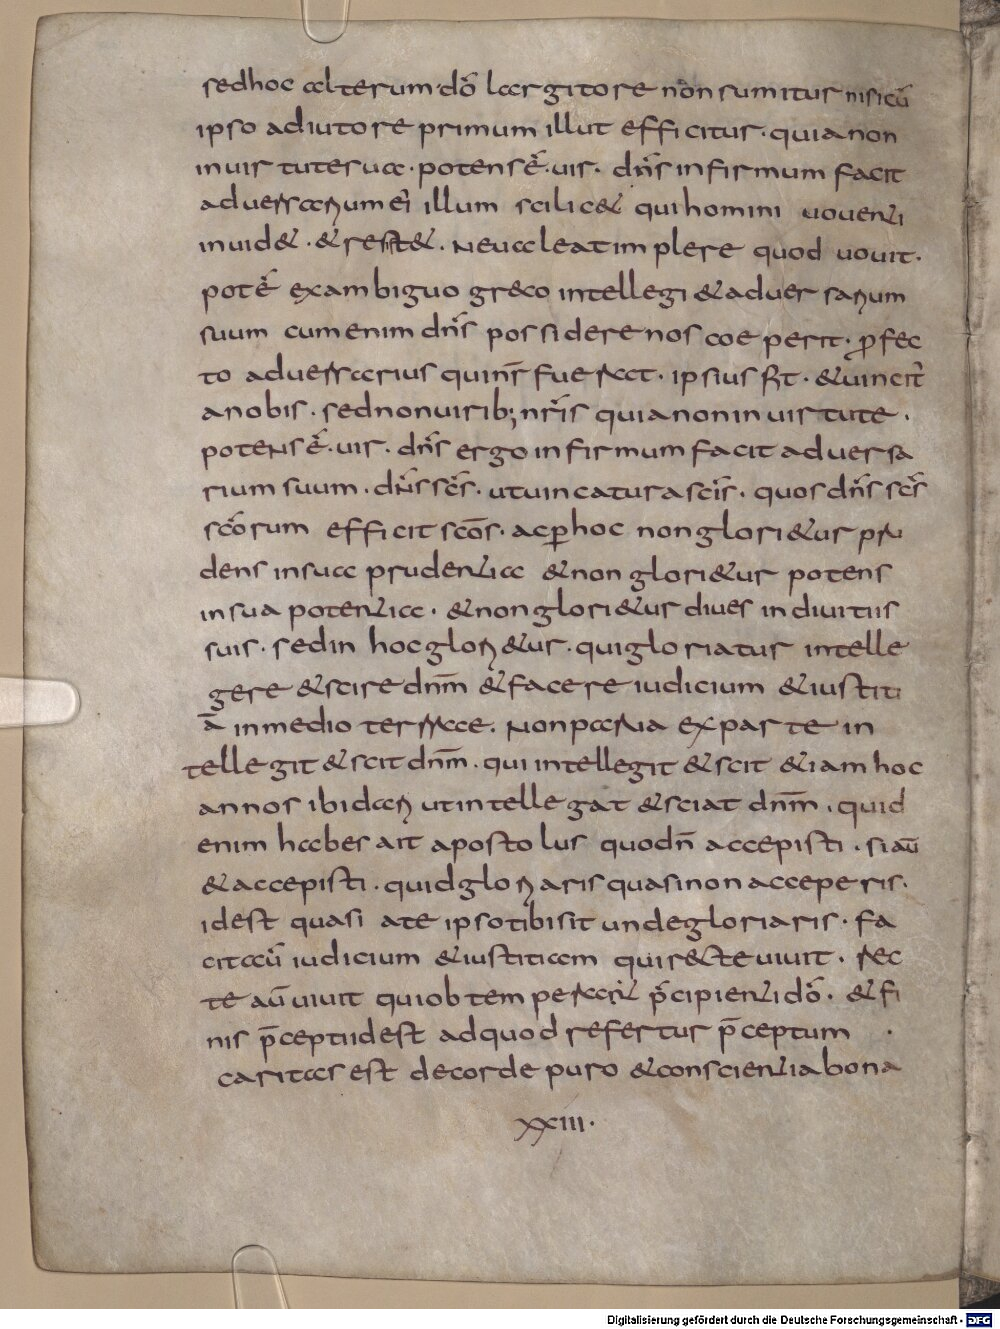 sedhoc alterum·dō largitore non sumitur nisicū
ipso adiutore primum illut efficitur· quianon
inuirtutesua· potens ē· uir· dn̄s infirmum facit
aduersariumei illum scilicet quihomini uouenti
inuidet· & restet· Neualeat implere quod uouit·
potē exambiguo greco intellegi & aduersarium
suum cumenim dn̄s possidere nos coeperit· ꝓfec
to aduersarius quinr̄ fuerat· ipsius fit· & uincit̄
anobis· sednonuirib; nr̄is quianoninuirtute·
potens ē· uir· dn̄s ergo infirmum facit aduersa
rium suum· dn̄s scs̄· utuincatur ascīs· quos dn̄s scs̄
scōrum efficit scōs· acꝑhoc nonglorietur pru
dens insua prudentia & non glorietur potens
insua potentia· & nonglorietur diues indiuitiis
suis· sedin hocglorietur· quigloriatur intelle
gere & scire dnm̄ & facere iudicium & iustiti
ā inmedio terrae· Nonparua exparte in
tellegit & scit dnm̄· qui intellegit & scit & iam hoc
annos ibidari utintellegat & sciat dnm̄· quid
enim habes ait apostolus quodn̄ accepisti· siaū
& accepisti· quidgloriaris quasinonacceperis·
idest quasi ate ipsotibisit undegloriaris· fa
citaū iudicium & iustitiam quirecteuiuit· rec
te aū uiuit quiobtemperat p̄cipientidō· & fi
nis p̄ceptiidest adquod refertur p̄ceptum ·
caritas est decorde puro & conscientiabona
xxiii·
Digitalisierung gefördert durch die Deutsche Forschungsgemeinschaft - DFG